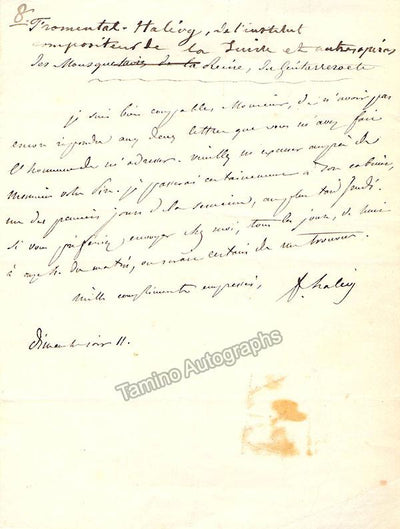 8.
Fromental-Halévy, de l'institut
compositeur de la Juive et autres opéras
des Mousquetaires de la Reine, du Guitarrero etc
je suis bien coupable, Monsieur, de n'avoir pas
encore répondu aux deux lettres que vous m'avez fait
l'honneur de m'adresser. veuillez m'excuser auprès de
Monsieur votre Père. je passerai certainement à son cabinet,
un des premiers jours de la semaine, au plus tard Jeudi.
Si vous préférez envoyer chez moi, tous les jours, de huit
à onze h. du matin, on sera certain de me trouver.
Mille compliments empressés,
F. halévy
Dimanche soir 11.
Tamino Autographs